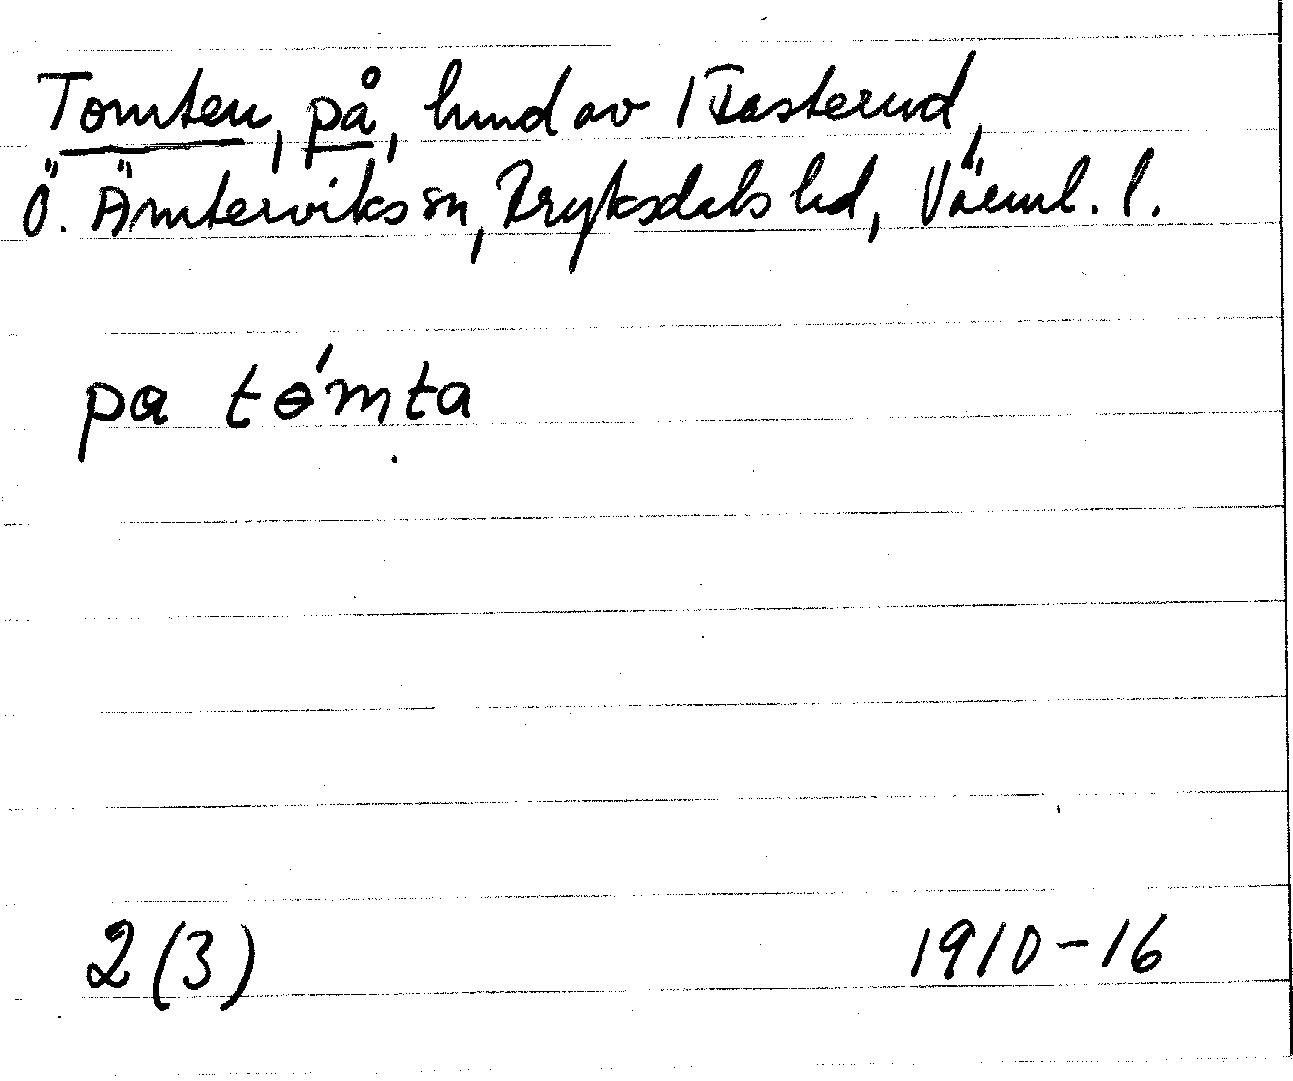 Tomten, på, hmd av 1 Fasterud,
Ö. Ämterviks sn, Fryksdals hd, Värml. l.
pa tɵ́mta
2 (3) 1910-16